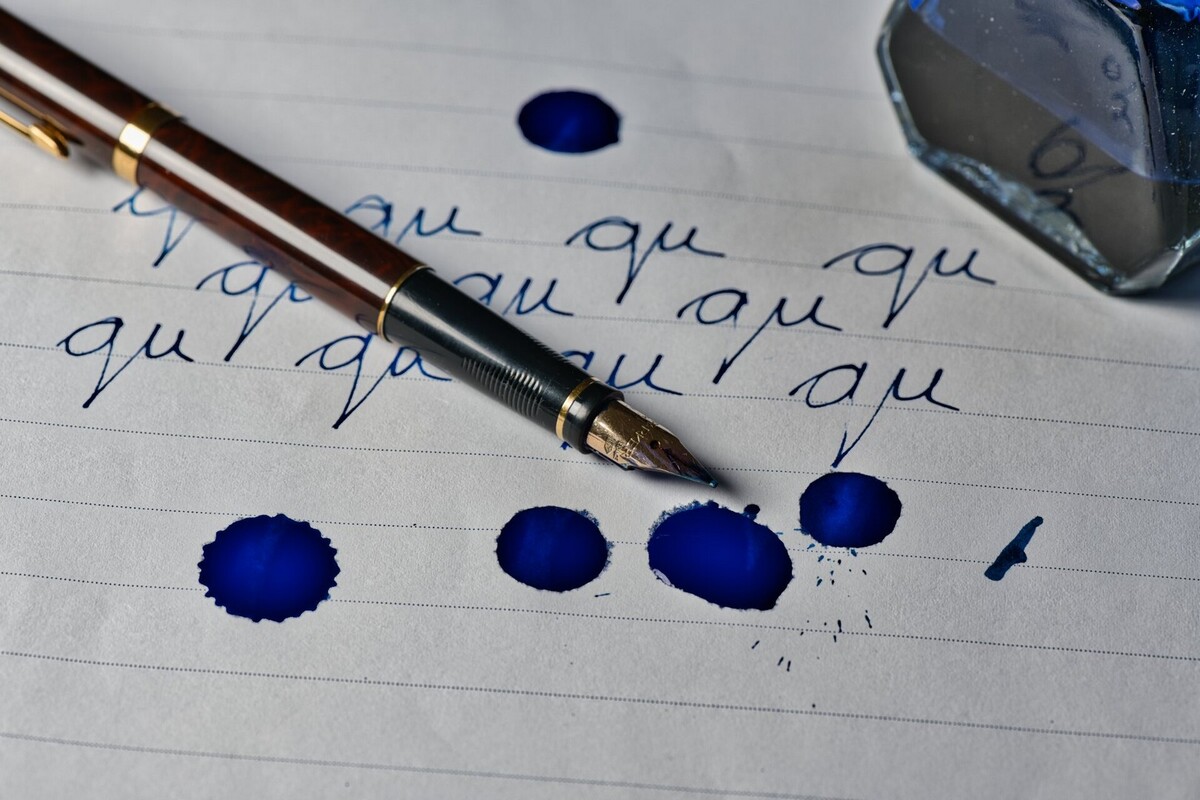 qu qu qu qu
qu qu qu
qu qu qu qu